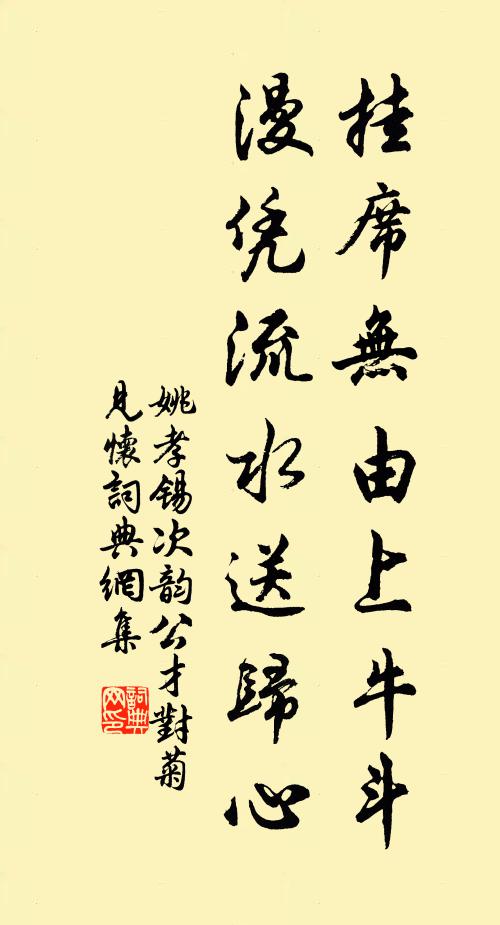 挂席無由上牛斗
漫凭流水送歸心
姚孝锡次韵公才對菊
見懷詞典網集
詞典
网印